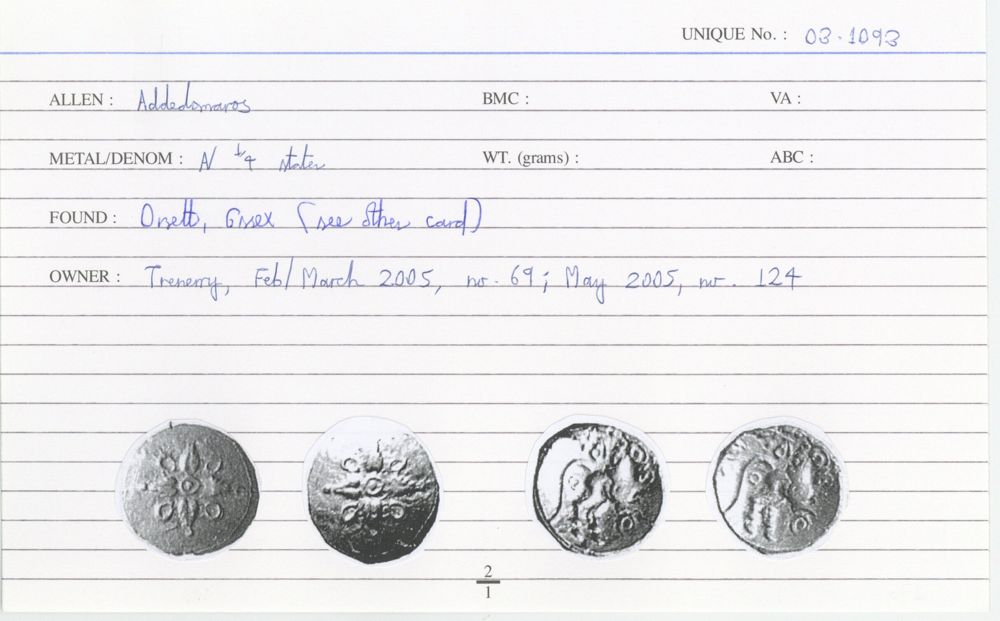 UNIQUE No. : 03.1093
ALLEN : Addedomaros BMC : VA :
METAL/DENOM : N 1/4 stater WT. (grams) : ABC :
FOUND : Orsett, Essex (see other card)
OWNER : Trenerry, Feb/March 2005, nr. 69; May 2005, nr. 124
2
1